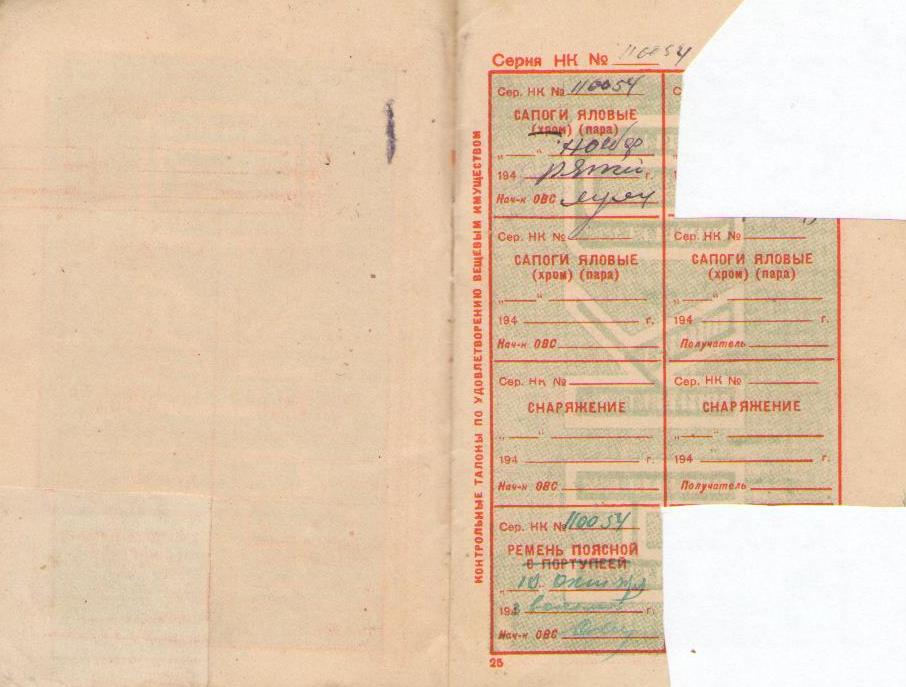 Серия НК № 110054
Сер. НК № 110054
С
САПОГИ ЯЛОВЫЕ
(хром) (пара)
„ “
194
Нач-к ОВС
Сер. НК №
САПОГИ ЯЛОВЫЕ
(хром) (пара)
„ “
194 г.
Нач-к ОВС
Сер. НК №
САПОГИ ЯЛОВЫЕ
(хром) (пара)
„ “
194 г.
Получатель
Сер. НК №
СНАРЯЖЕНИЕ
„ “
194 г.
Нач-к ОВС
Сер. НК №
СНАРЯЖЕНИЕ
„ “
194 г.
Получатель
Сер. НК № 110054
РЕМЕНЬ ПОЯСНОЙ
С ПОРТУПЕЕЙ
„ “
194 г.
Нач-к ОВС
КОНТРОЛЬНЫЕ ТАЛОНЫ ПО УДОВЛЕТВОРЕНИЮ ВЕЩЕВЫМ ИМУЩЕСТВОМ
25